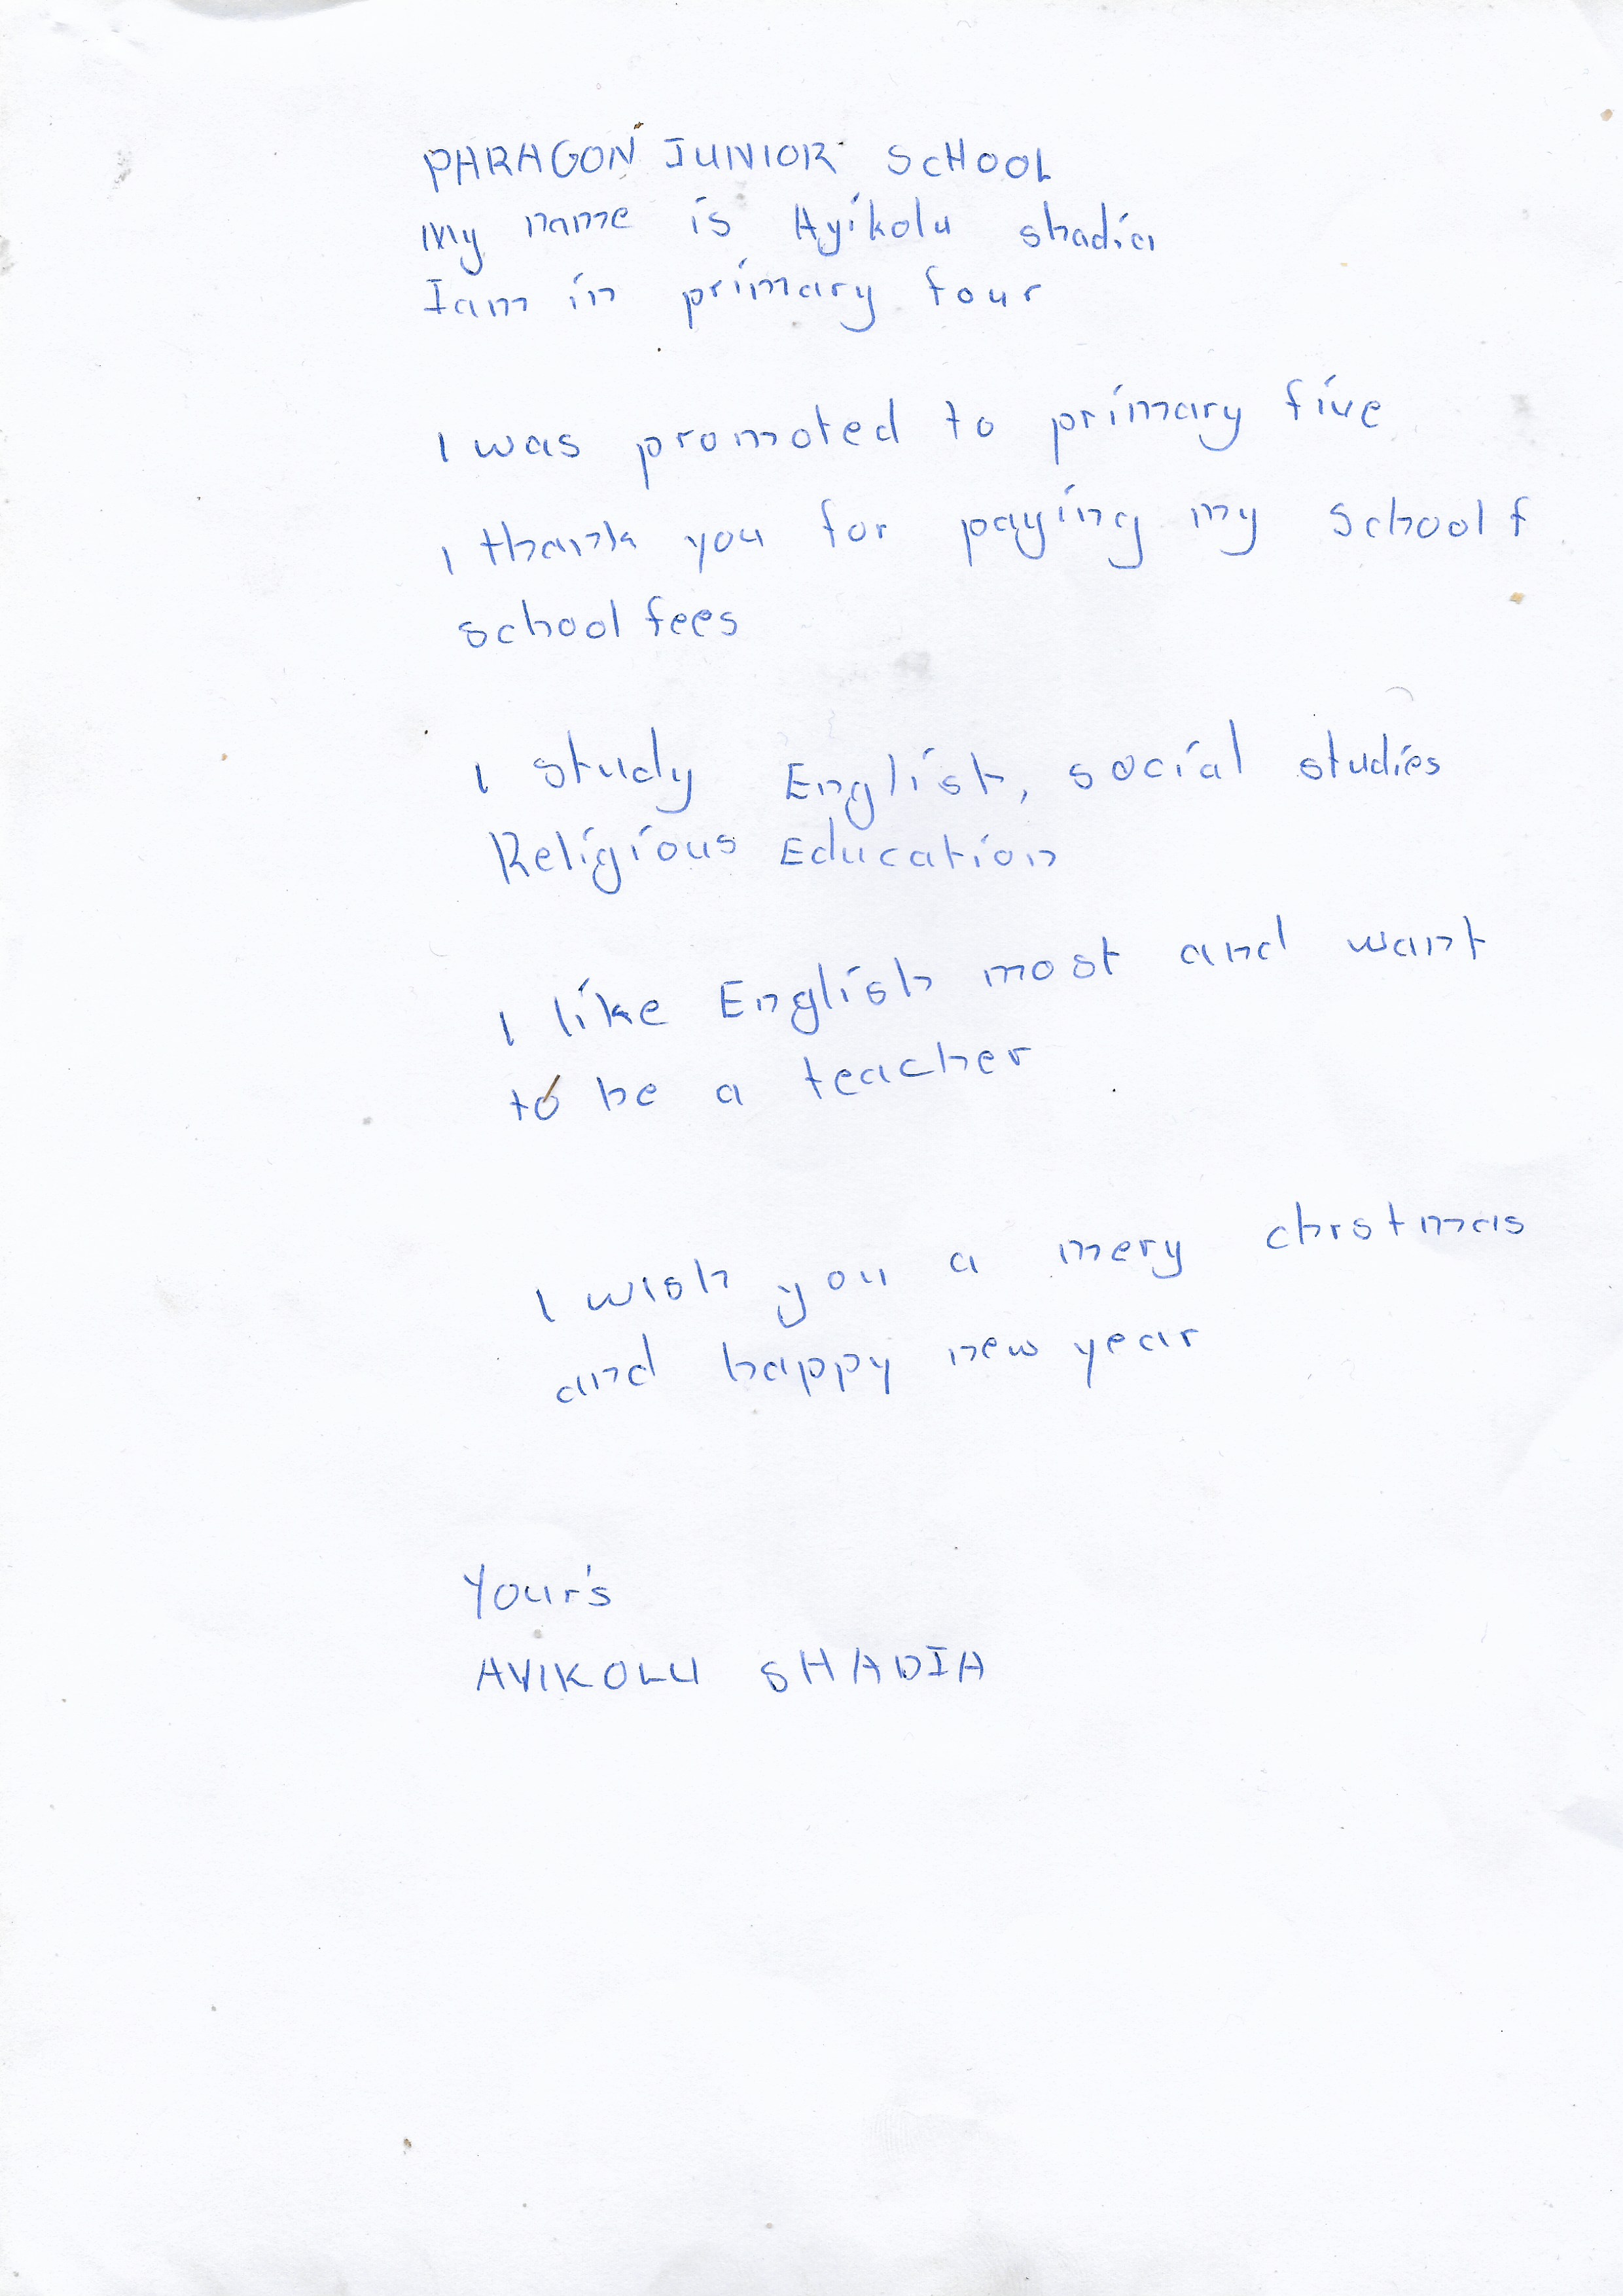 PARAGON JUNIOR SCHOOL
My name is Ayikolu shadia
Iam in primary four
I was promoted to primary five
I thank you for paying my school f
school fees
I study English, social studies
Religious Education
I like English most and want
to be a teacher
I wish you a mery chrstmas
and happy new year
Your's
AYIKOLU SHADIA